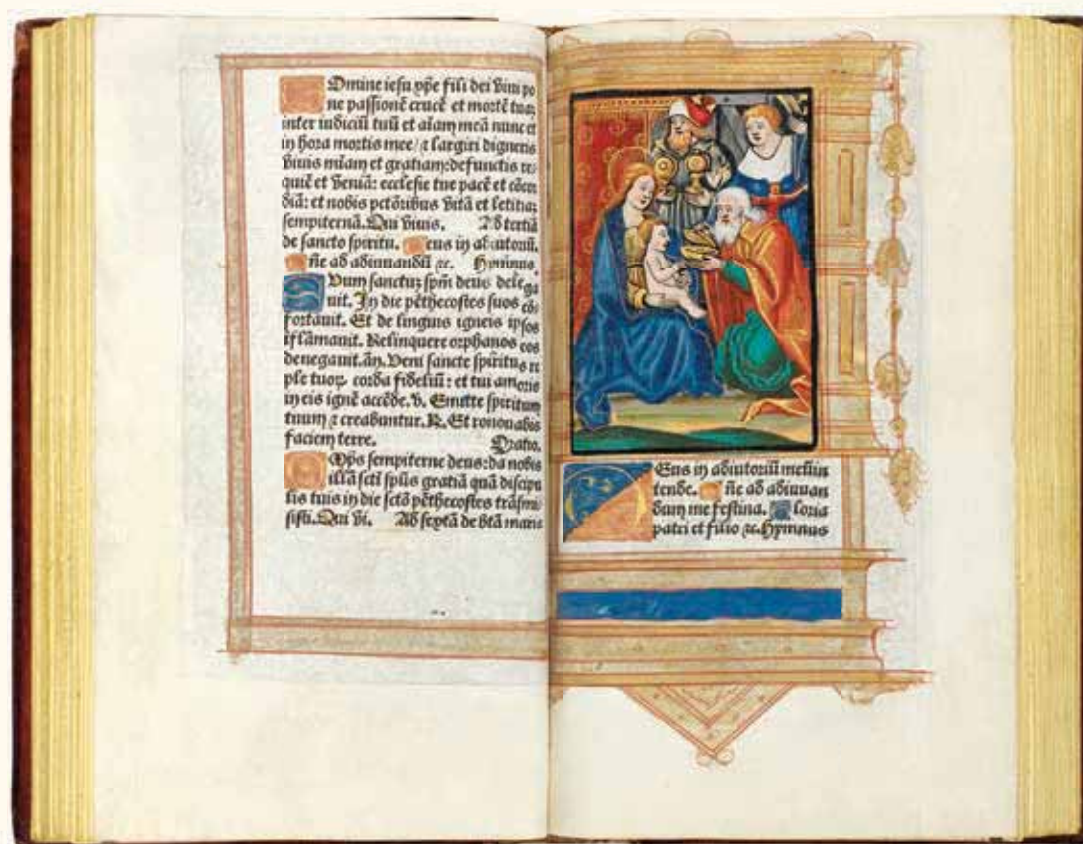 Domine iesu xp̄e fili dei viui po
ne passionē crucē et mortē tuaꝫ
inter iudiciū tuū et aīam meā nunc et
in hora mortis mee / ⁊ largiri digneris
viuis mīam et gratiam: defunctis re⸗
quiē et veniā: ecclesie tue pacē et cōcor
diā: et nobis pctōribus vitā et letitiaꝫ
sempiternā. Qui viuis. Ad tertiā
de sancto spiritu. Deus in adiutoriū.
Dn̄e ad adiuuandū ⁊c. Hymnus
Suum sanctuꝫ spm̄ deus delega
uit. In die pēthecostes suos cō
fortauit. Et de linguis igneis ipsos
īflāmauit. Relinquere orphanos eos
denegauit. añ. Veni sancte spiritus re
ple tuoꝝ corda fideliū: et tui amoris
in eis ignē accēde. v. Emitte spiritum
tuum ⁊ creabuntur. R. Et renouabis
faciem terre. Oratio.
Omps sempiterne deus: da nobis
illā scti spūs gratiā quā discipu
lis tuis in die sctō pēthecostes trāsmi
sisti. Qui vi. Ad sextā de btā maria
Deus in adiutoriū meū in
tende. Dn̄e ad adiuuan
dum me festina. Gloria
patri et filio ⁊c. Hymnus